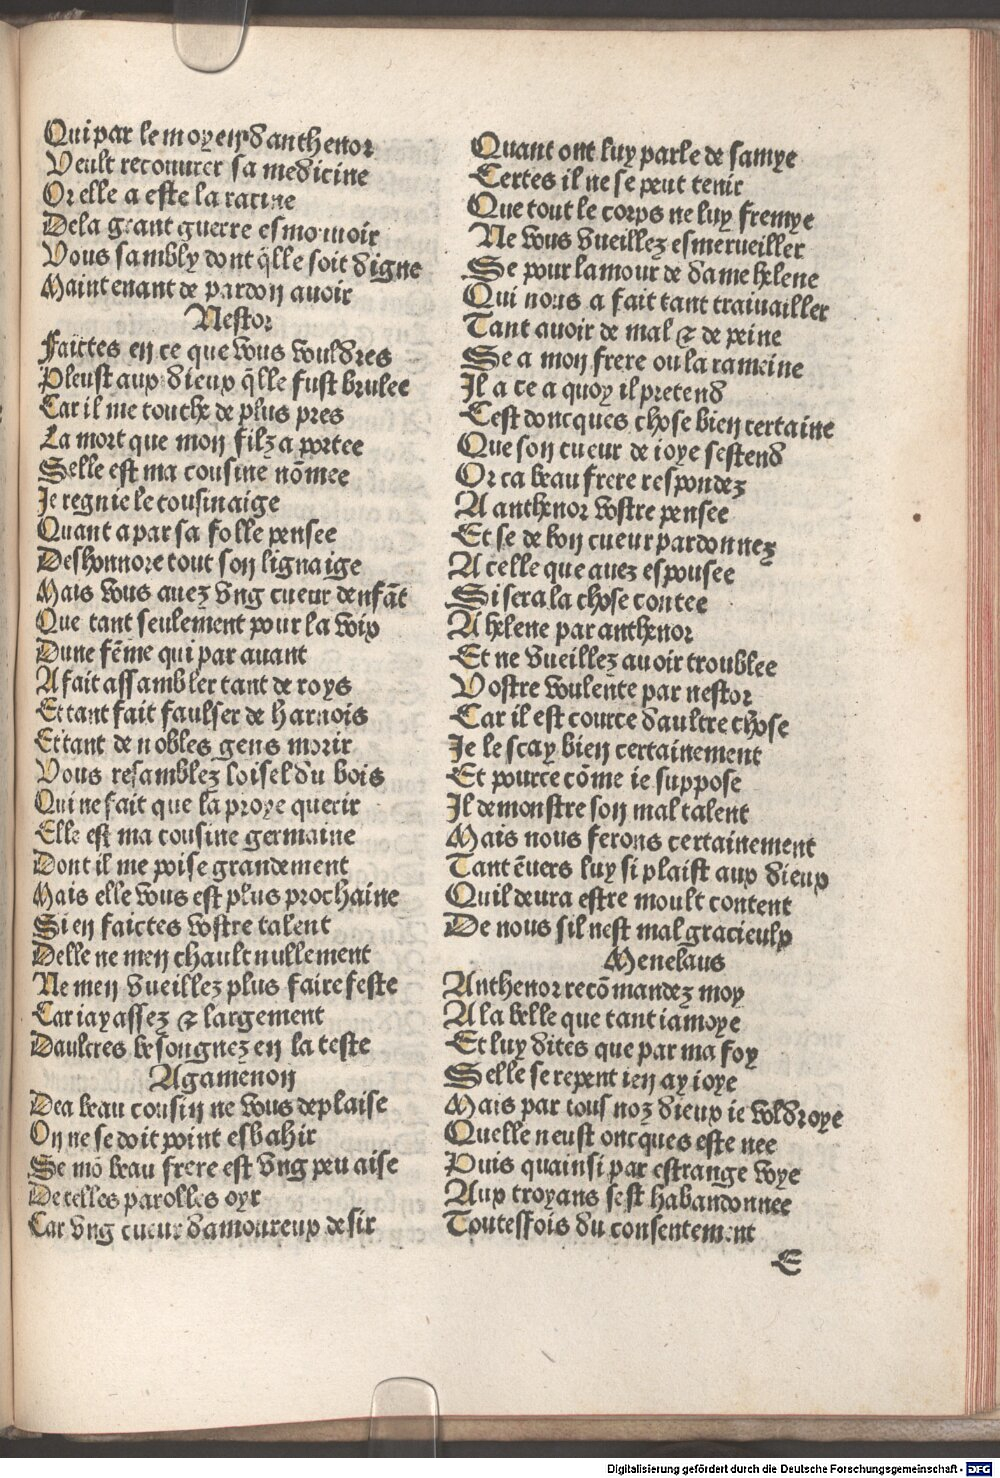 Qui par le moyen danthenor
Veult recouurer sa medicine
Or elle a este la racine
Dela grant guerre esmouuoir
Vous sambly dont q̃lle soit digne
Maintenant de pardon auoir
Nestor
Faictes en ce que vous vouldres
Pleust aux dieux q̃lle fust brulee
Car il me touche de plus pres
La mort que mon filz a portee
Selle est ma cousine nõmee
Je regnie le cousinaige
Quant a par sa folle pensee
Deshonnore tout son lignaige
Mais vous auez vng cueur denfãt
Que tant seulement pour la voix
Dune fẽme qui par auant
A fait assambler tant de roys
Et tant fait faulser de harnois
Et tant de nobles gens morir
Vous resamblez loisel du bois
Qui ne fait que la proye querir
Elle est ma cousine germaine
Dont il me poise grandement
Mais elle vous est plus prochaine
Si en faictes vostre talent
Delle ne men chault nullement
Ne men vueillez plus faire feste
Car iay assez & largement
Daultres besongnez en la teste
Agamenon
Dea beau cousin ne vous deplaise
On ne se doit point esbahir
Se mõ beau frere est vng peu aise
De telles parolles oyr
Car vng cueur damoureux desir
Quant ont luy parle de samye
Certes il ne se peut tenir
Que tout le corps ne luy fremye
Ne vous vueillez esmerueiller
Se pour lamour de dame helene
Qui nous a fait tant trauuailler
Tant auoir de mal & de peine
Se a mon frere ou la rameine
Il a ce a quoy il pretend
Cest doncques chose bien certaine
Que son cueur de ioye sestend
Or ca beau frere respondez
A anthenor vostre pensee
Et se de bon cueur pardonnez
A celle que auez espousee
Si sera la chose contee
A helene par anthenor
Et ne vueillez auoir troublee
Vostre voulente par nestor
Car il est cource daultre chose
Je le scay bien certainement
Et pource cõme ie suppose
Il demonstre son mal talent
Mais nous ferons certainement
Tant ẽuers luy si plaist aux dieux
Quil deura estre moult content
De nous sil nest mal gracieulx
Menelaus
Anthenor recõmandez moy
A la belle que tant iamoye
Et luy dites que par ma foy
Selle se repent ien ay ioye
Mais par tous noz dieux ie voldroye
Quelle neust oncques este nee
Puis quainsi par estrange voye
Aux troyans sest habandonnee
Toutesfois du consentement
E
Digitalisierung gefördert durch die Deutsche Forschungsgemeinschaft - DFG